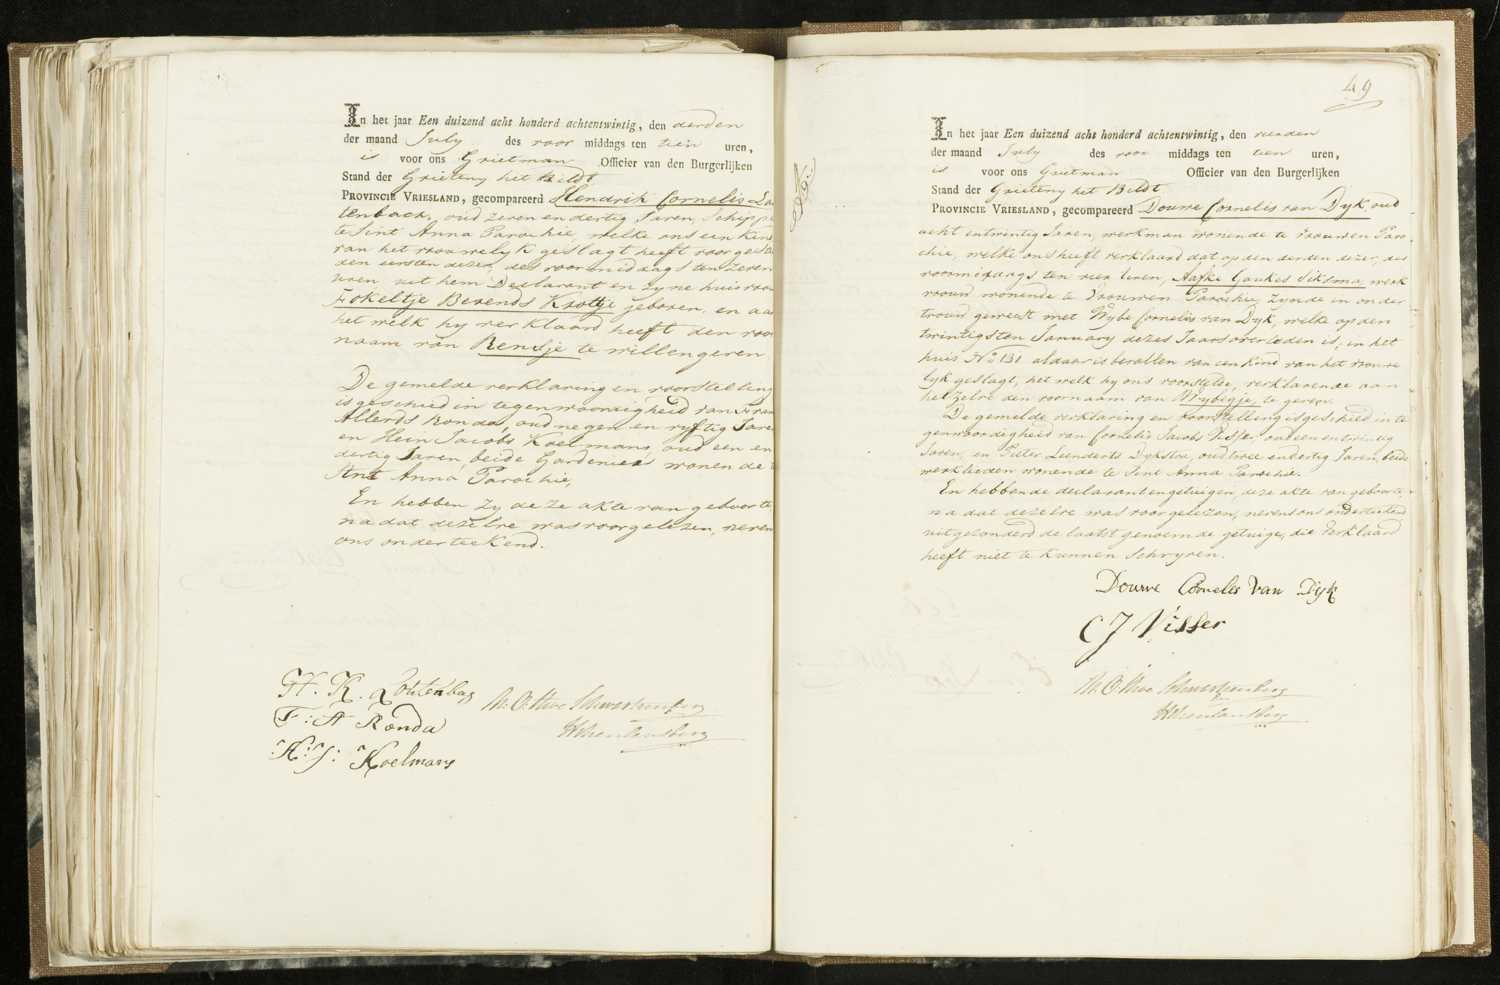 In het jaar Een duizend acht honderd achtentwintig, den derden
der maand July des voor middags ten tien uren,
is voor ons Grietman Officier van den Burgerlijken
Stand der Grieteny het Bildt
PROVINCIE VRIESLAND, gecompareerd Hendrik Cornelis
tenbach, oud zeven en dertig Jaren, Schipper
te Sint Anna Parochie, welke ons een Kind
van het vrouwelyk geslagt heeft voorgesteld
den eersten dezer, des voormiddags ten zeven
uren uit hem Declarant en zyne huisvrouw
Fokeltje Berends Krottje geboren, en aan
het welk hy verklaard heeft den voor
naam van Rensje te willen geven
De gemelde verklaring en voorstelling
is geschied in tegenwoordigheid van Frans
Allerds Ronda, oud negen en vyftig Jaren
en Hein Jacobs Koelmans, oud een en
dertig Jaren, beide Gardeniers wonende te
Sint Anna Parochie,
En hebben zy deze akte van geboorte,
na dat dezelve was voorgelezen, nevens
ons onderteekend.
H. K. Loutenbag
F: A Ronda
H: J: Koelmans
49
In het jaar Een duizend acht honderd achtentwintig, den vierden
der maand July des voor middags ten tien uren,
is voor ons Grietman Officier van den Burgerlijken
Stand der Grieteny het Bildt
PROVINCIE VRIESLAND, gecompareerd Douwe Cornelis van Dyk, oud
acht en twintig Jaren, werkman wonende te Vrouwen Paro-
chie, welke ons heeft verklaard dat op den derden dezer, des
voormiddags ten vier uren, Aafke Gaukes Siksma, werk
vrouw wonende te Vrouwen Parochie, zynde in onder
trouw geweest met Wybe Cornelis van Dyk, welke op den
twintigsten January dezes Jaars overleden is, in het
huis No 131 aldaar is bevallen van een kind van het vrouwe
lyk geslagt, het welk hy ons voorstelde, verklarende aan
hetzelve den voornaam van Wybigje, te geven.
De gemelde verklaring en voorstelling is geschied in te
genwoordigheid van Cornelis Jacobs Visser, oud een en twintig
Jaren, en Pieter Leenderts Dykstra, oud twee en dertig Jaren, beide
werklieden wonende te Sint Anna Parochie.
En hebben de declarant en getuigen, deze akte van geboorte,
na dat dezelve was voorgelezen, nevens ons onderteekend
uitgezonderd de laatst genoemde getuige, die verklaard
heeft niet te kunnen schryven.
Douwe Cornelis van Dijk
C J Visser